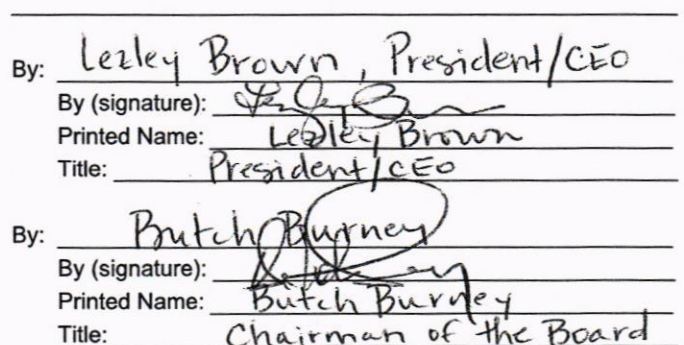 By: Lezley Brown, President/CEO
By (signature):
Printed Name: Lezley Brown
Title: President/CEO
By: Butch Burney
By (signature):
Printed Name: Butch Burney
Title: Chairman of the Board